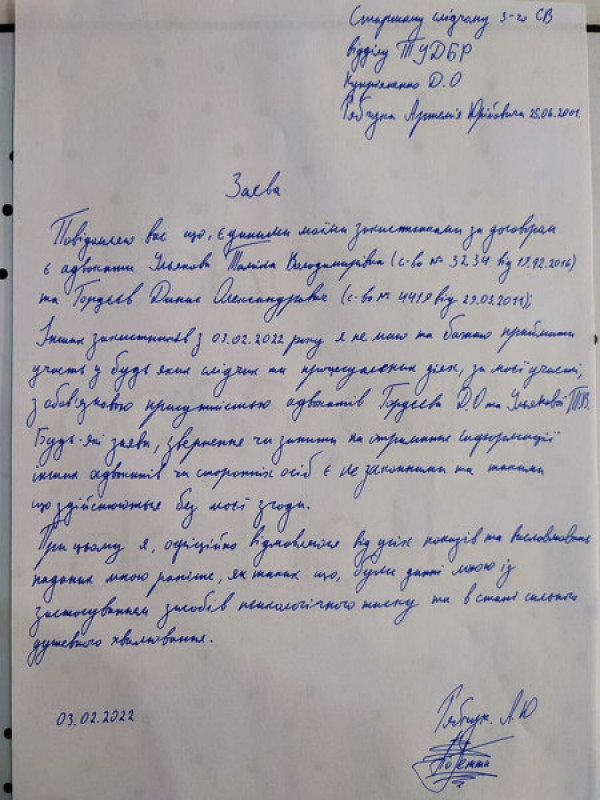 Старшому слідчому 3-го СВ
відділу ТУДБР
Купріяненко Д.О
Рябчука Артемія Юрійовича 25.06.2001.
Заява
Повідомляю вас що, єдиними моїми захистниками за договором
є адвокати Ульякова Таміла Володимирівна (с-во № 3234 від 19.12.2016)
та Гордєєв Динис Олександрович (с-во № 4419 від 29.03.2011);
Інших захистників з 03.02.2022 року я не маю та бажаю приймати
участь у будь яких слідчих та процесуальних діях, за моєї участі,
з обов'язковою присутністью адвокатів Гордєєва Д.О та Ульякової Т.В.
Будь-які заяви, звернення чи запити на отримання інформації
інших адвокатів чи сторонніх осіб є не законними та такими
що здійснюються без моєї згоди.
При цьому я, офіційно відмовляюся від усіх показів та висловлювань
наданих мною раніше, як таких що, були данні мною із
застосуванням засобів психологічного тиску та в стані сильного
душевного хвилювання.
03.02.2022
Рябчук. А.Ю